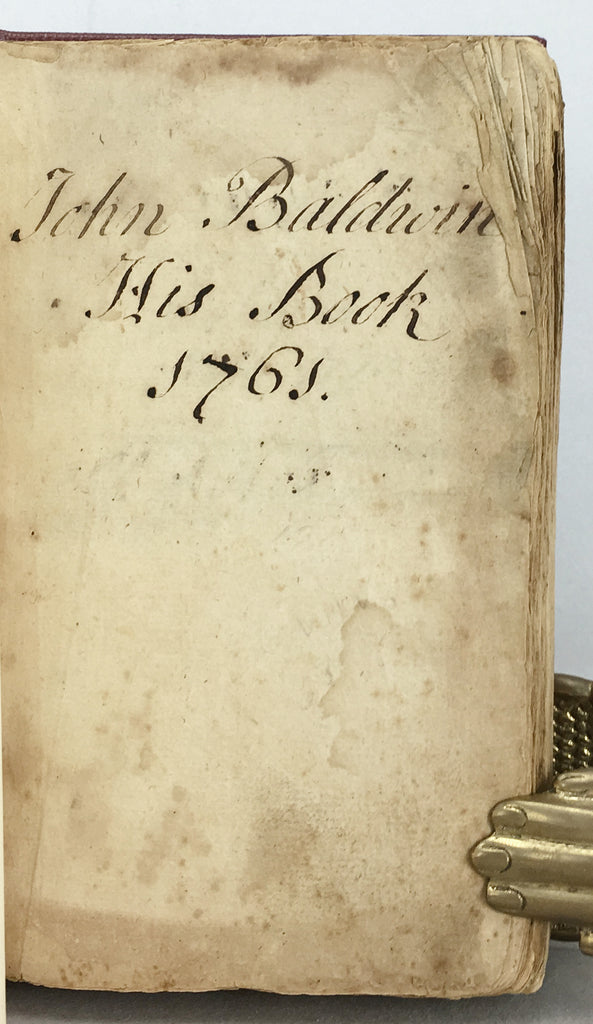 John Baldwin
His Book
1761.